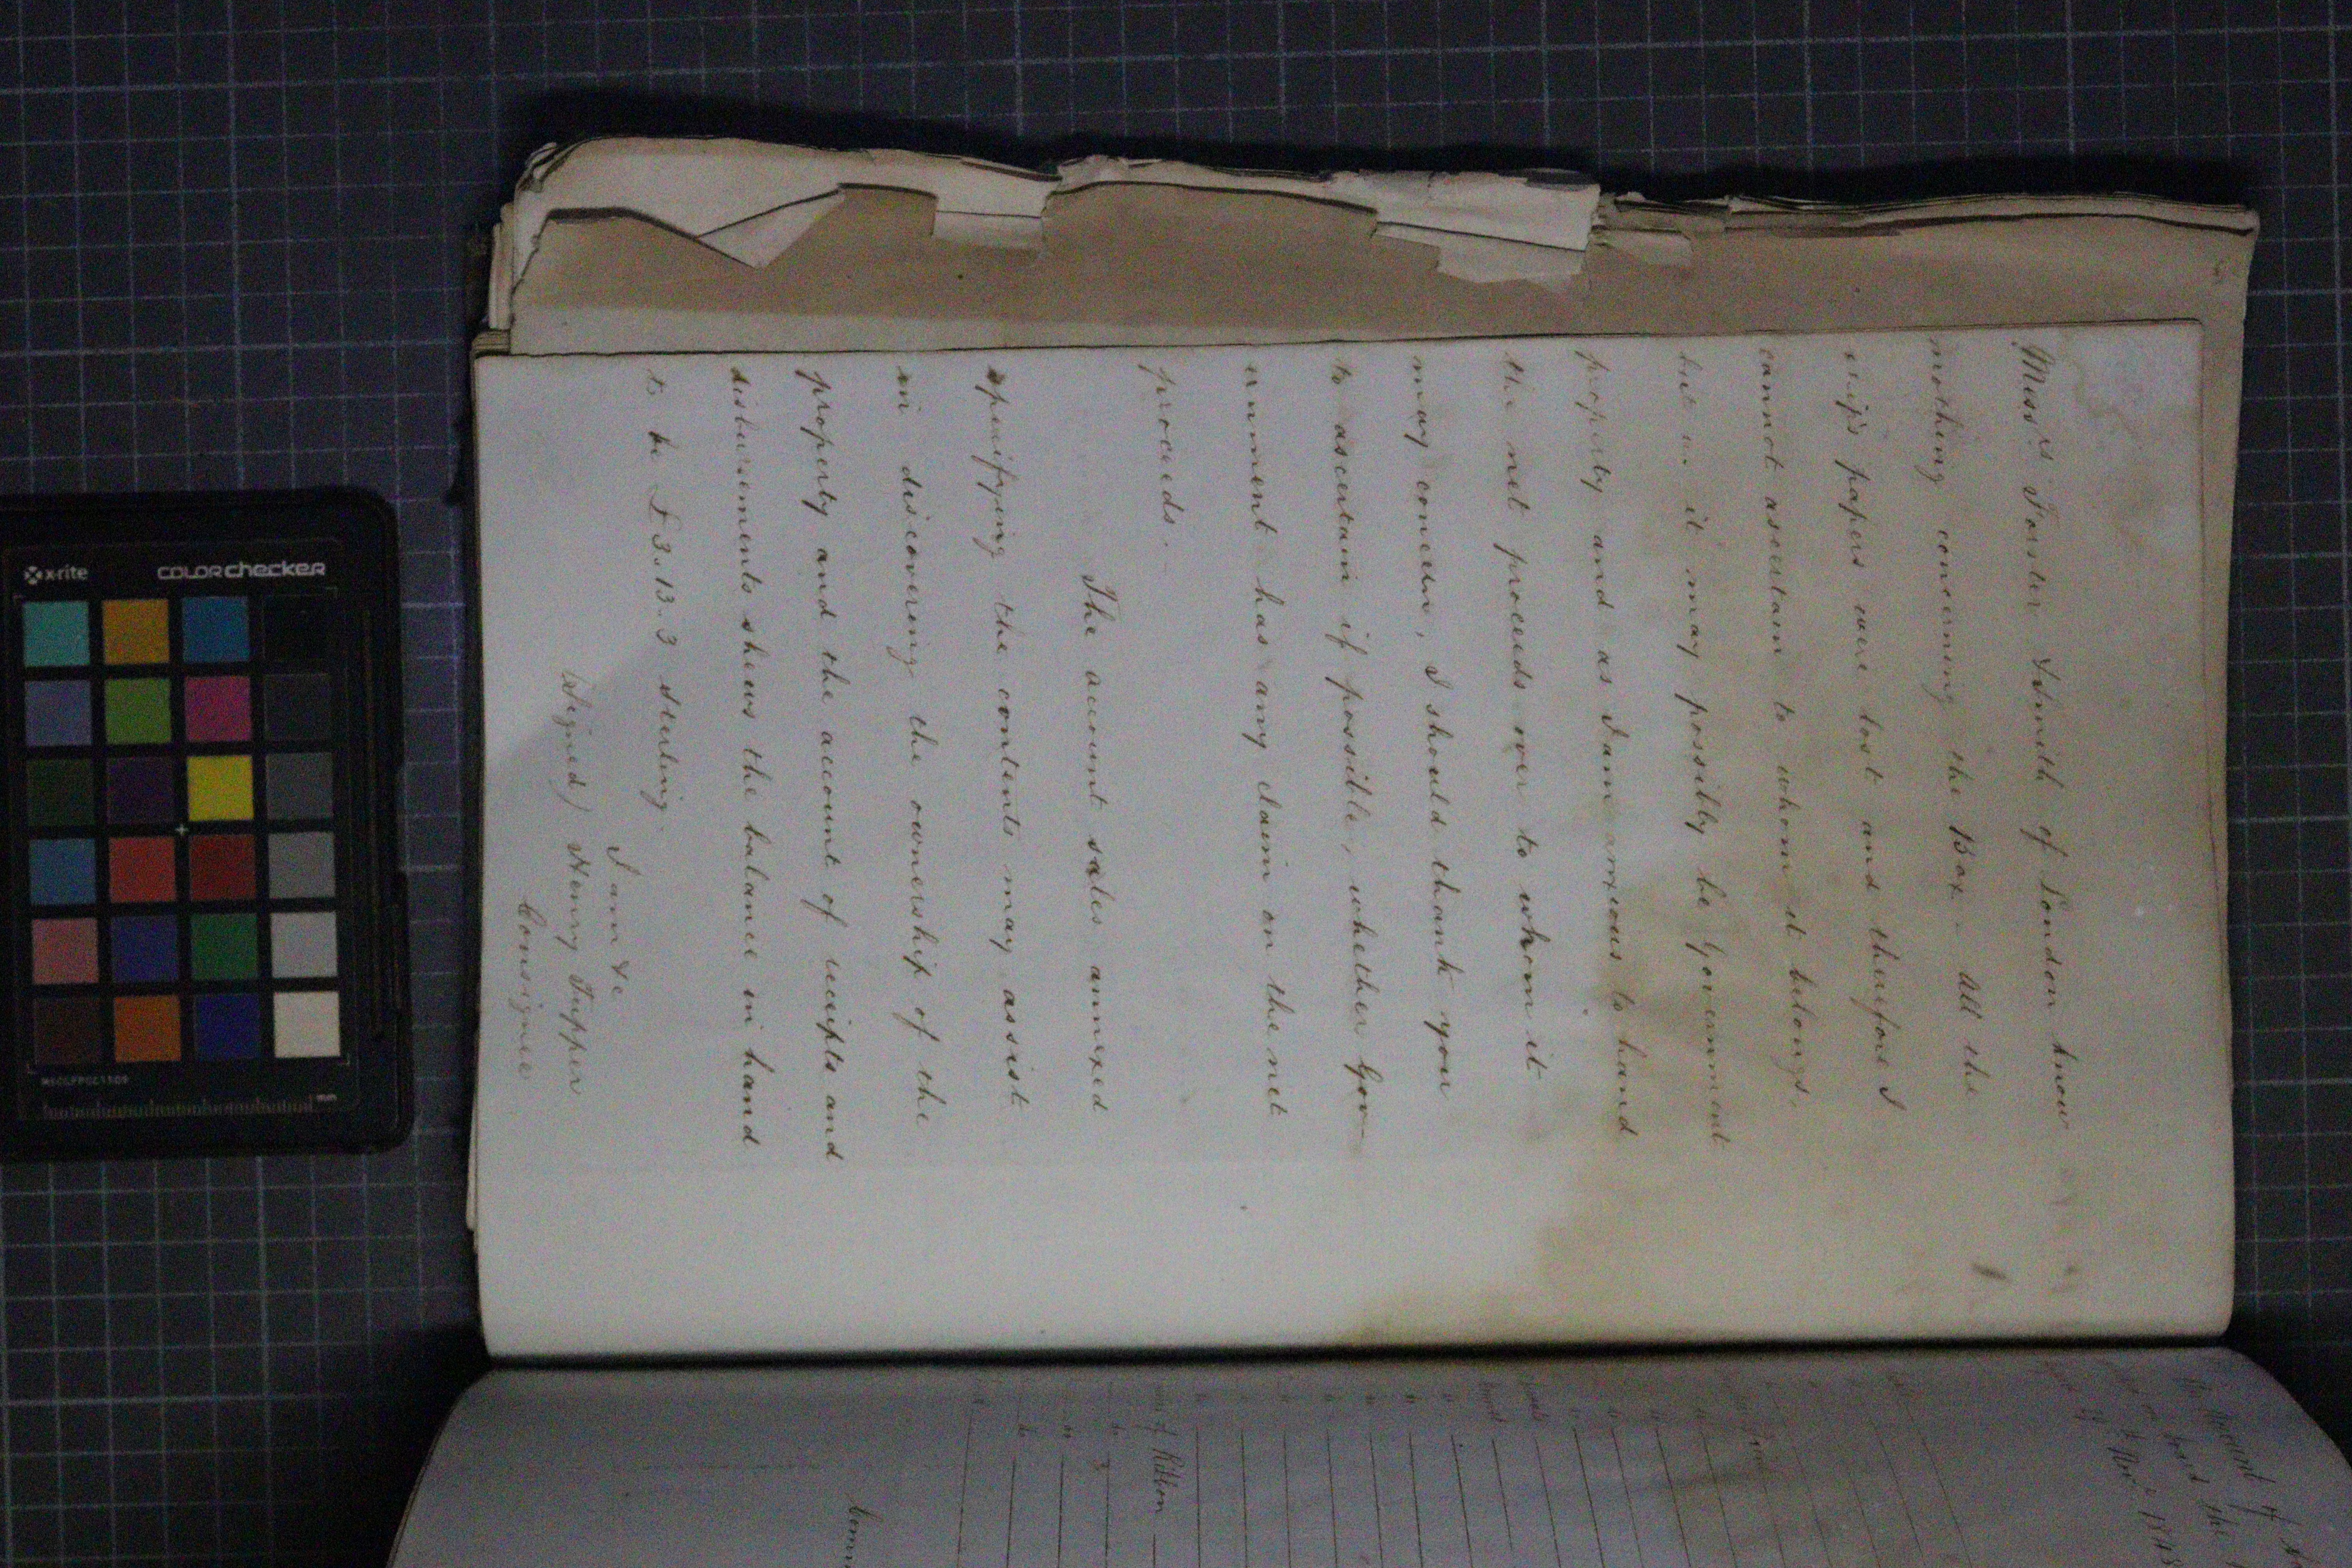 Mess.rs Forster & Smith of London know
nothing concerning the Box - All the
ship's papers were lost and therefore I
cannot ascertain to whom it belongs,
but it may possibly be Government
property and as I am anxious to hand
the net proceeds over to whom it
may concern, I should thank you
to ascertain if possible, whether Gov-
ernment has any claim on the net
proceeds.
The account sales annexed
specifying the contents may assist
in discovering the ownership of the
property and the account of receipts and
disbursements shews the balance in hand
to be £3.13.3 sterling.
I am &c
(Signed) Henry Tupper
Consignee
account of
board the
of Ribbon
x-rite
colorchecker
mm